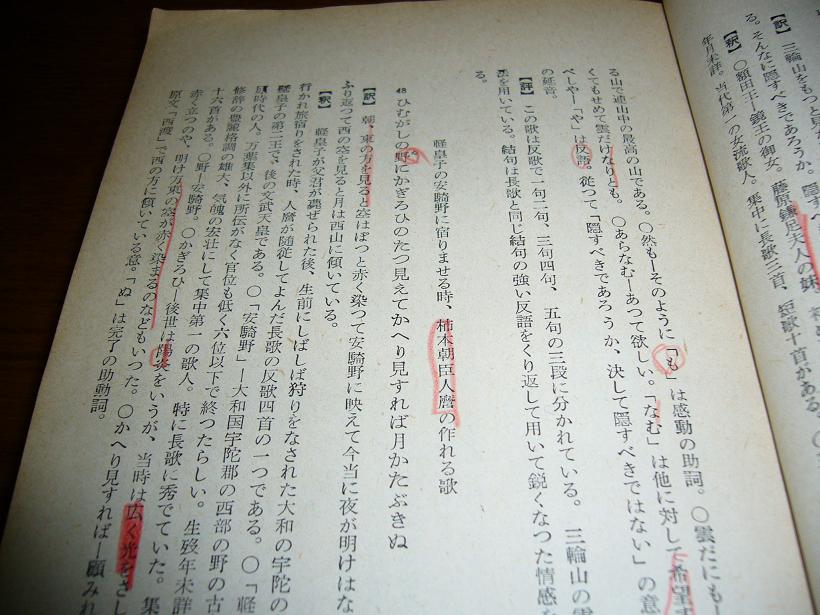 【訳】三輪山をもつと見
る。そんなに隠すべきであろうか。隠すべ
【釈】〇額田王ー鏡王の御女。藤原鎌足夫人の妹。
年月未詳。当代第一の女流歌人。集中に長歌三首、短歌十首がある。
る山で連山中の最高の山である。〇然もーそのように「も」は感動の助詞。〇雲だにも
くてもせめて雲だけなりとも。〇あらなむーあつて欲しい。「なむ」は他に対して希望
べしやー「や」は反語。従つて「隠すべきであろうか、決して隠すべきではない」の意
の延音。
【評】この歌は反歌で一句二句、三句四句、五句の三段に分かれている。三輪山の雲
法を用いている。結句は長歌と同じ結句の強い反語をくり返して用いて鋭くなつた情感を
る。
軽皇子の安騎野に宿りませる時、柿本朝臣人麿の作れる歌
48 ひむがしの野にかぎろひのたつ見えてかへり見すれば月かたぶきぬ
【訳】朝、東の方を見ると空はぽつと赤く染つて安騎野に映えて今当に夜が明けはな
ふり返つて西の空を見ると月は西山に傾いている。
【釈】軽皇子が父君が薨ぜられた後、生前にしばしば狩りをなされた大和の宇陀の
行かれ旅宿りをされた時、人麿が随従してよんだ長歌の反歌四首の一つである。〇「軽
軽皇子の第二王で、後の文武天皇である。〇「安騎野」ー大和国宇陀郡の西部の野の古
原時代の人。万葉集以外に所伝がなく官位も低く六位以下で終つたらしい。生歿年未詳
修辞の豊麗格調の雄大、気魄の
十六首がある。〇野ー安騎野。〇かぎろひー後世は陽炎をいうが、当時は広く光をさし
赤く立つのや、明け方東の空が赤く染まるのなどもいつた。〇かへり見すればー顧みれ
原文「西渡」で西の方に傾いている意。「ぬ」は完了の助動詞。